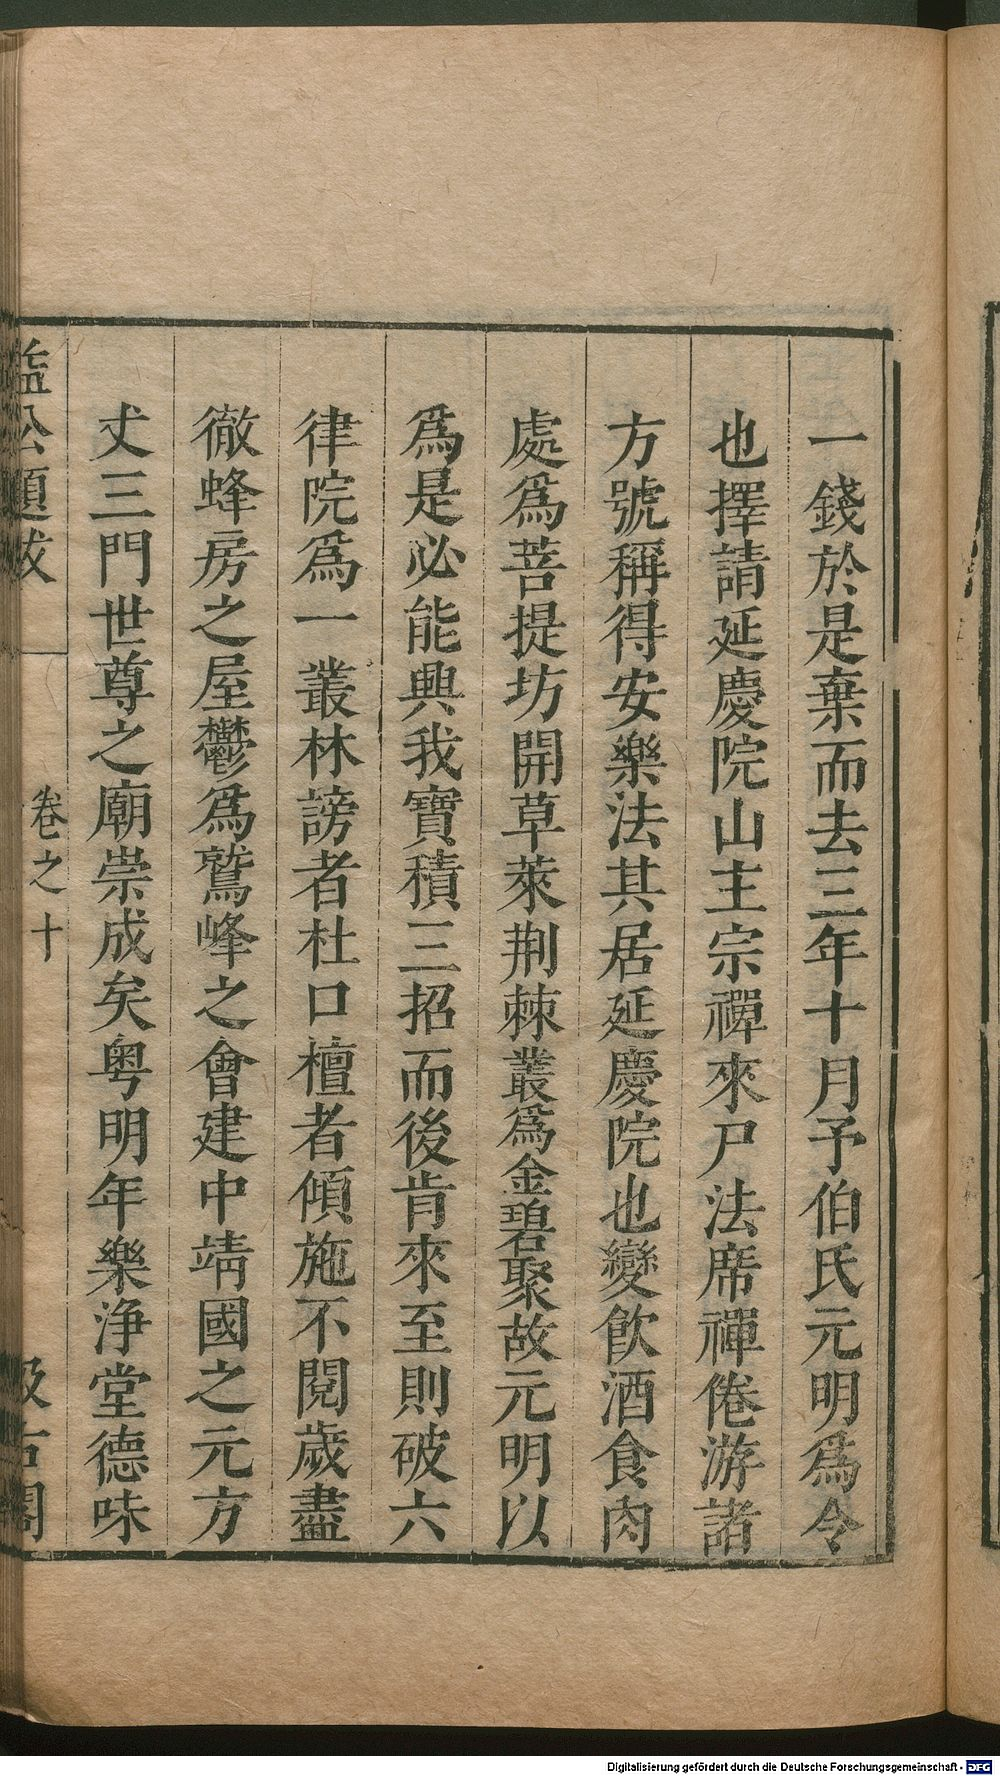 一錢於是棄而去三年十月予伯氏元明爲令
也擇請延慶院山主宗禪來尸法席禪倦游諸
方號稱得安樂法其居延慶院也變飲酒食肉
處爲菩提坊開草萊荆棘叢爲金碧聚故元明以
爲是必能興我寶積三招而後肯來至則破六
律院爲一叢林謗者杜口檀者傾施不閱歲盡
徹蜂房之屋鬱爲鷲峰之會建中靖國之元方
丈三門世尊之廟崇成矣粤明年樂浄堂德味
益公題跋
卷之十
汲古閣
Digitalisierung gefördert durch die Deutsche Forschungsgemeinschaft - DFG